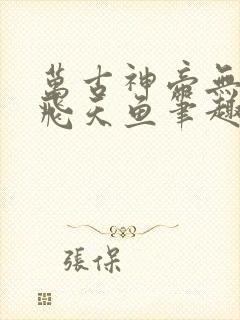 萬古神帝無
飛天魚筆趣
張保